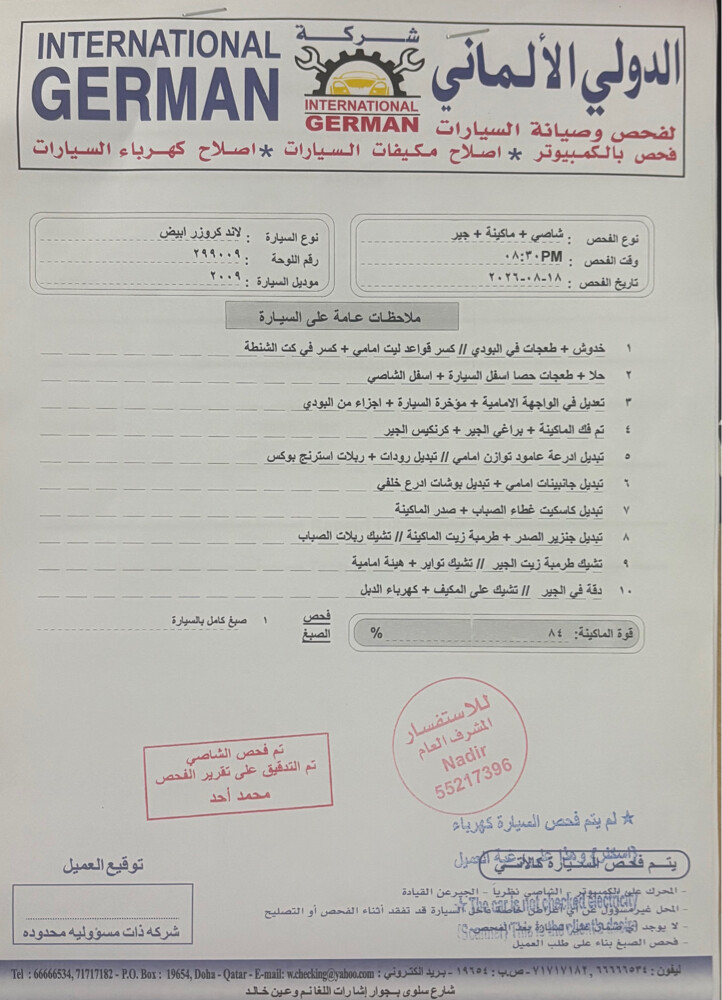 INTERNATIONAL
GERMAN
شركة
INTERNATIONAL
GERMAN
الدولي الألماني
لفحص وصيانة السيارات
فحص بالكمبيوتر * اصلاح مكيفات السيارات * اصلاح كهرباء السيارات
نوع الفحص : شاصي + ماكينة + جير
وقت الفحص : ٠٨:٣٠PM
تاريخ الفحص : ١٨-٠٨-٢٠٢٦
نوع السيارة : لاند كروزر ابيض
رقم اللوحة : ٢٩٩٠٠٩
موديل السيارة : ٢٠٠٩
ملاحظات عامة على السيارة
١ خدوش + طعجات في البودي // كسر قواعد ليت امامي + كسر في كت الشنطة
٢ حلا + طعجات حصا اسفل السيارة + اسفل الشاصي
٣ تعديل في الواجهة الامامية + مؤخرة السيارة + اجزاء من البودي
٤ تم فك الماكينة + براغي الجير + كرنكيس الجير
٥ تبديل ادرعة عامود توازن امامي // تبديل رودات + ربلات استرنج بوكس
٦ تبديل جانبينات امامي + تبديل بوشات ادرع خلفي
٧ تبديل كاسكيت غطاء الصباب + صدر الماكينة
٨ تبديل جنزير الصدر + طرمبة زيت الماكينة // تشيك ربلات الصباب
٩ تشيك طرمبة زيت الجير // تشيك تواير + هيئة امامية
١٠ دقة في الجير // تشيك على المكيف + كهرباء الدبل
قوة الماكينة: ٨٤ %
فحص الصبغ
١ صبغ كامل بالسيارة
للاستفسار
المشرف العام
Nadir
55217396
تم فحص الشاصي
تم التدقيق على تقرير الفحص
محمد أحد
★ لم يتم فحص السيارة كهرباء
(اسكنر) وهذا على رغبة العميل
* The car is not checked electricity
يتم فحص السيارة كالاتي
- المحرك على الكمبيوتر - الشاصي نظرياً - الجير عن القيادة
- المحل غير مسؤول عن أي اغراض خاصة داخل السيارة قد تفقد أثناء الفحص أو التصليح
- فحص الصبغ بناء على طلب العميل
توقيع العميل
شركة ذات مسؤوليه محدوده
Tel : 66666534, 71717182 - P.O. Box : 19654, Doha - Qatar - E-mail: w.checking@yahoo.com : ليفون: ٦٦٦٦٦٥٣٤, ٧١٧١٧١٨٢ - ص.ب: ١٩٦٥٤ - بريد الكتروني
شارع سلوى بجوار إشارات اللغانم وعين خالد